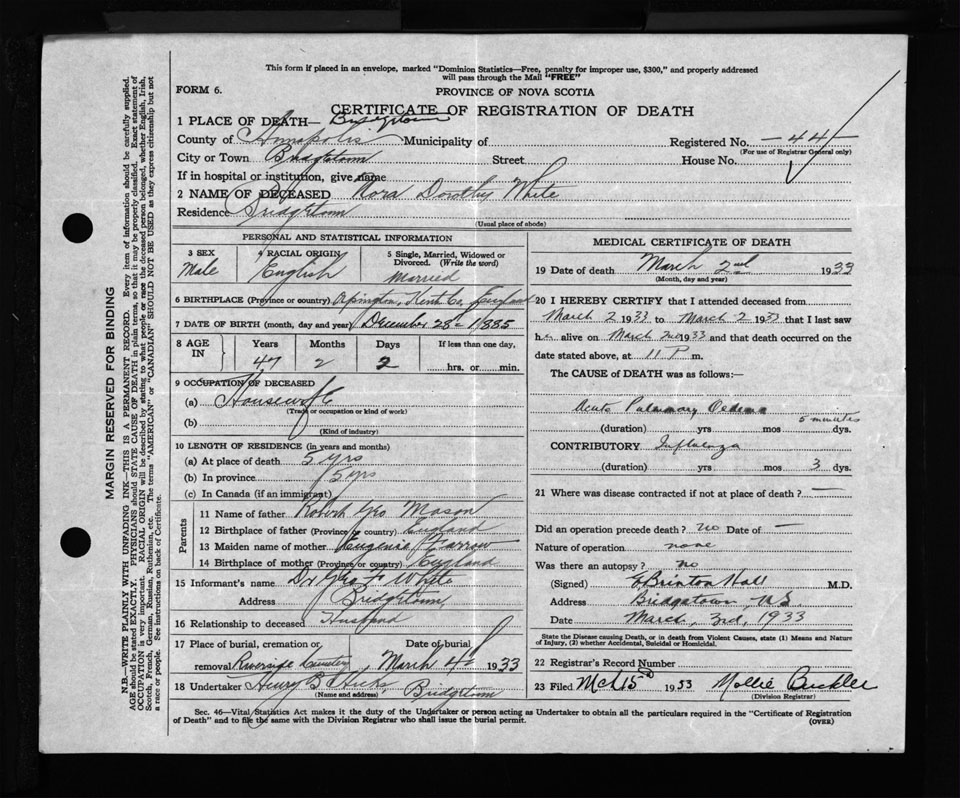 This form if placed in an envelope, marked "Dominion Statistics—Free, penalty for improper use, $300," and properly addressed
will pass through the Mail "FREE"
FORM 6.
PROVINCE OF NOVA SCOTIA
CERTIFICATE OF REGISTRATION OF DEATH
1 PLACE OF DEATH— Bridgetown
County of Annapolis Municipality of Registered No. —44—
(For use of Registrar General only)
City or Town Bridgetown Street House No.
If in hospital or institution, give name
2 NAME OF DECEASED Nora Dorothy White
Residence Bridgetown
(Usual place of abode)
PERSONAL AND STATISTICAL INFORMATION
3 SEX 4 RACIAL ORIGIN 5 Single, Married, Widowed or
Divorced. (Write the word)
Male English Married
6 BIRTHPLACE (Province or country) Orpington, Kent Co, England
7 DATE OF BIRTH (month, day and year) December 28th 1885
8 AGE IN Years Months Days If less than one day,
47 2 2 hrs. or min.
9 OCCUPATION OF DECEASED
(a) Housewife
(Trade or occupation or kind of work)
(b)
(Kind of industry)
10 LENGTH OF RESIDENCE (in years and months)
(a) At place of death 5 yrs
(b) In province 5 yrs
(c) In Canada (if an immigrant)
Parents
11 Name of father Robert Geo Mason
12 Birthplace of father (Province or country) England
13 Maiden name of mother Eugenia Farrow
14 Birthplace of mother (Province or country) England
15 Informant's name Dr Geo F White
Address Bridgetown
16 Relationship to deceased Husband
17 Place of burial, cremation or Date of burial
removal Riverside Cemetery, March 4th 1933
18 Undertaker Henry B Hicks, Bridgetown
(Name and address)
MEDICAL CERTIFICATE OF DEATH
19 Date of death March 2nd 1933
(Month, day and year)
20 I HEREBY CERTIFY that I attended deceased from
March 2 1933 to March 2 1933 that I last saw
her alive on March 2nd 1933 and that death occurred on the
date stated above, at 11 P m.
The CAUSE of DEATH was as follows:—
Acute Pulmonary Oedema
(duration) yrs mos 5 minutes dys.
CONTRIBUTORY Influenza
(duration) yrs mos 3 dys.
21 Where was disease contracted if not at place of death? —
Did an operation precede death? no Date of —
Nature of operation none
Was there an autopsy? no
(Signed) Brinton Hall M.D.
Address Bridgetown, N.S.
Date March 3rd, 1933
State the Disease causing Death, or in death from Violent Causes, state (1) Means and Nature
of Injury, (2) whether Accidental, Suicidal or Homicidal.
22 Registrar's Record Number
23 Filed Mch 15th 1933 Mollie Buckler
(Division Registrar)
Sec. 46—Vital Statistics Act makes it the duty of the Undertaker or person acting as Undertaker to obtain all the particulars required in the "Certificate of Registration
of Death" and to file the same with the Division Registrar who shall issue the burial permit.
(OVER)
MARGIN RESERVED FOR BINDING
N.B.—WRITE PLAINLY WITH UNFADING INK—THIS IS A PERMANENT RECORD. Every item of information should be carefully supplied.
AGE should be stated EXACTLY. PHYSICIANS should STATE CAUSE OF DEATH in plain terms, so that it may be properly classified. Exact statement of
OCCUPATION is very important. RACIAL ORIGIN will be described by stating to what people or race the deceased person belonged, whether English, Irish,
Scotch, French, German, Russian, Ruthenian, etc. The terms "AMERICAN" or "CANADIAN" SHOULD NOT BE USED as they express citizenship but not
a race or people. See instructions on back of Certificate.